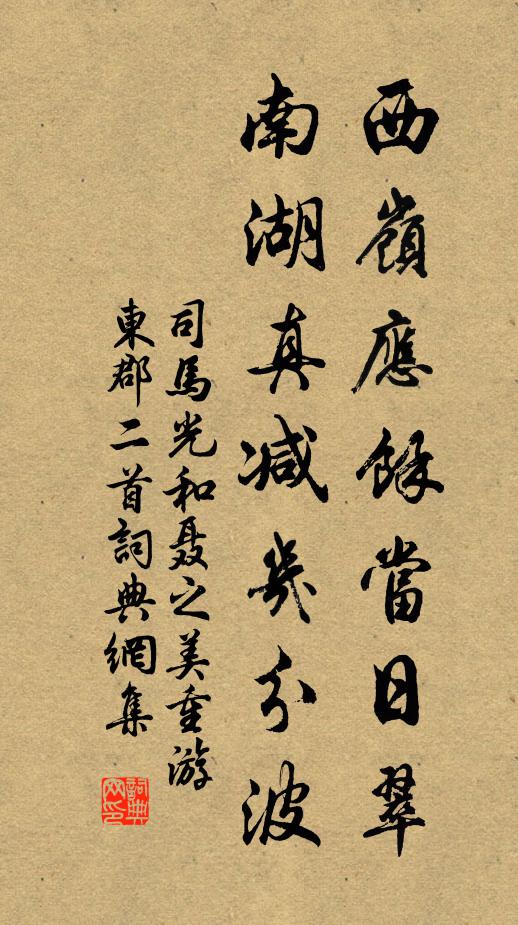 西嶺應餘當日翠
南湖真減幾分波
司馬光和聶之美重游
東郡二首詞典網集
詞典
网印